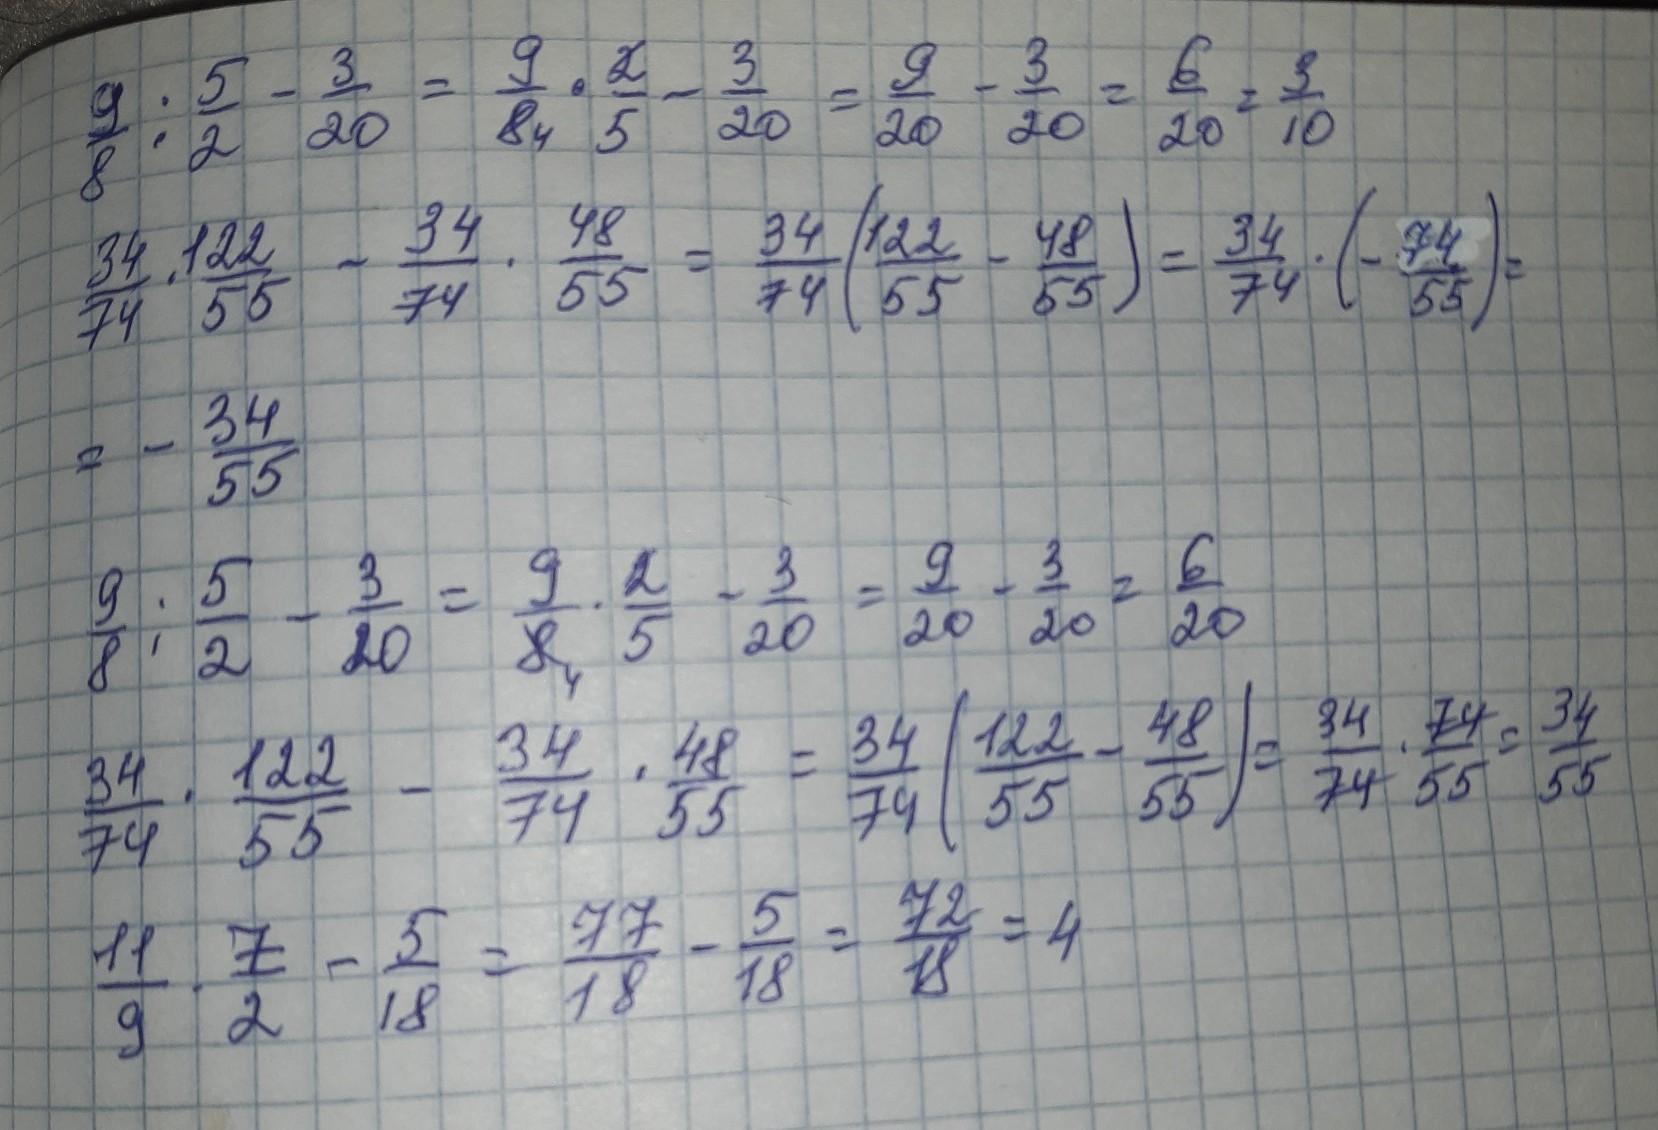 9/8 : 5/2 - 3/20 = 9/8 4 · 2/5 - 3/20 = 9/20 - 3/20 = 6/20 = 3/10
34/74 · 122/55 - 34/74 · 48/55 = 34/74 (122/55 - 48/55) = 34/74 · (- 74/55) =
= - 34/55
9/8 : 5/2 - 3/20 = 9/8 4 · 2/5 - 3/20 = 9/20 - 3/20 = 6/20
34/74 · 122/55 - 34/74 · 48/55 = 34/74 (122/55 - 48/55) = 34/74 · 74/55 = 34/55
11/9 · 7/2 - 5/18 = 77/18 - 5/18 = 72/18 = 4